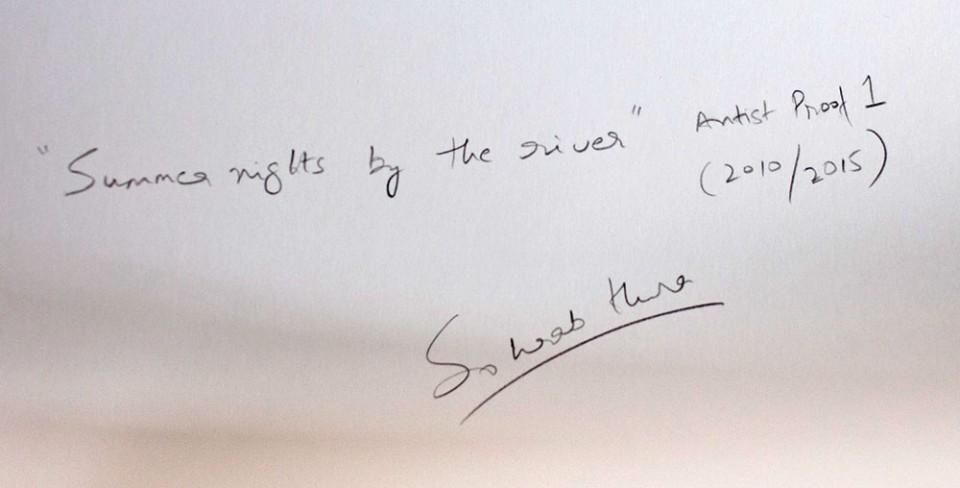 "Summer nights by the river" Artist Proof 1
(2010/2015)